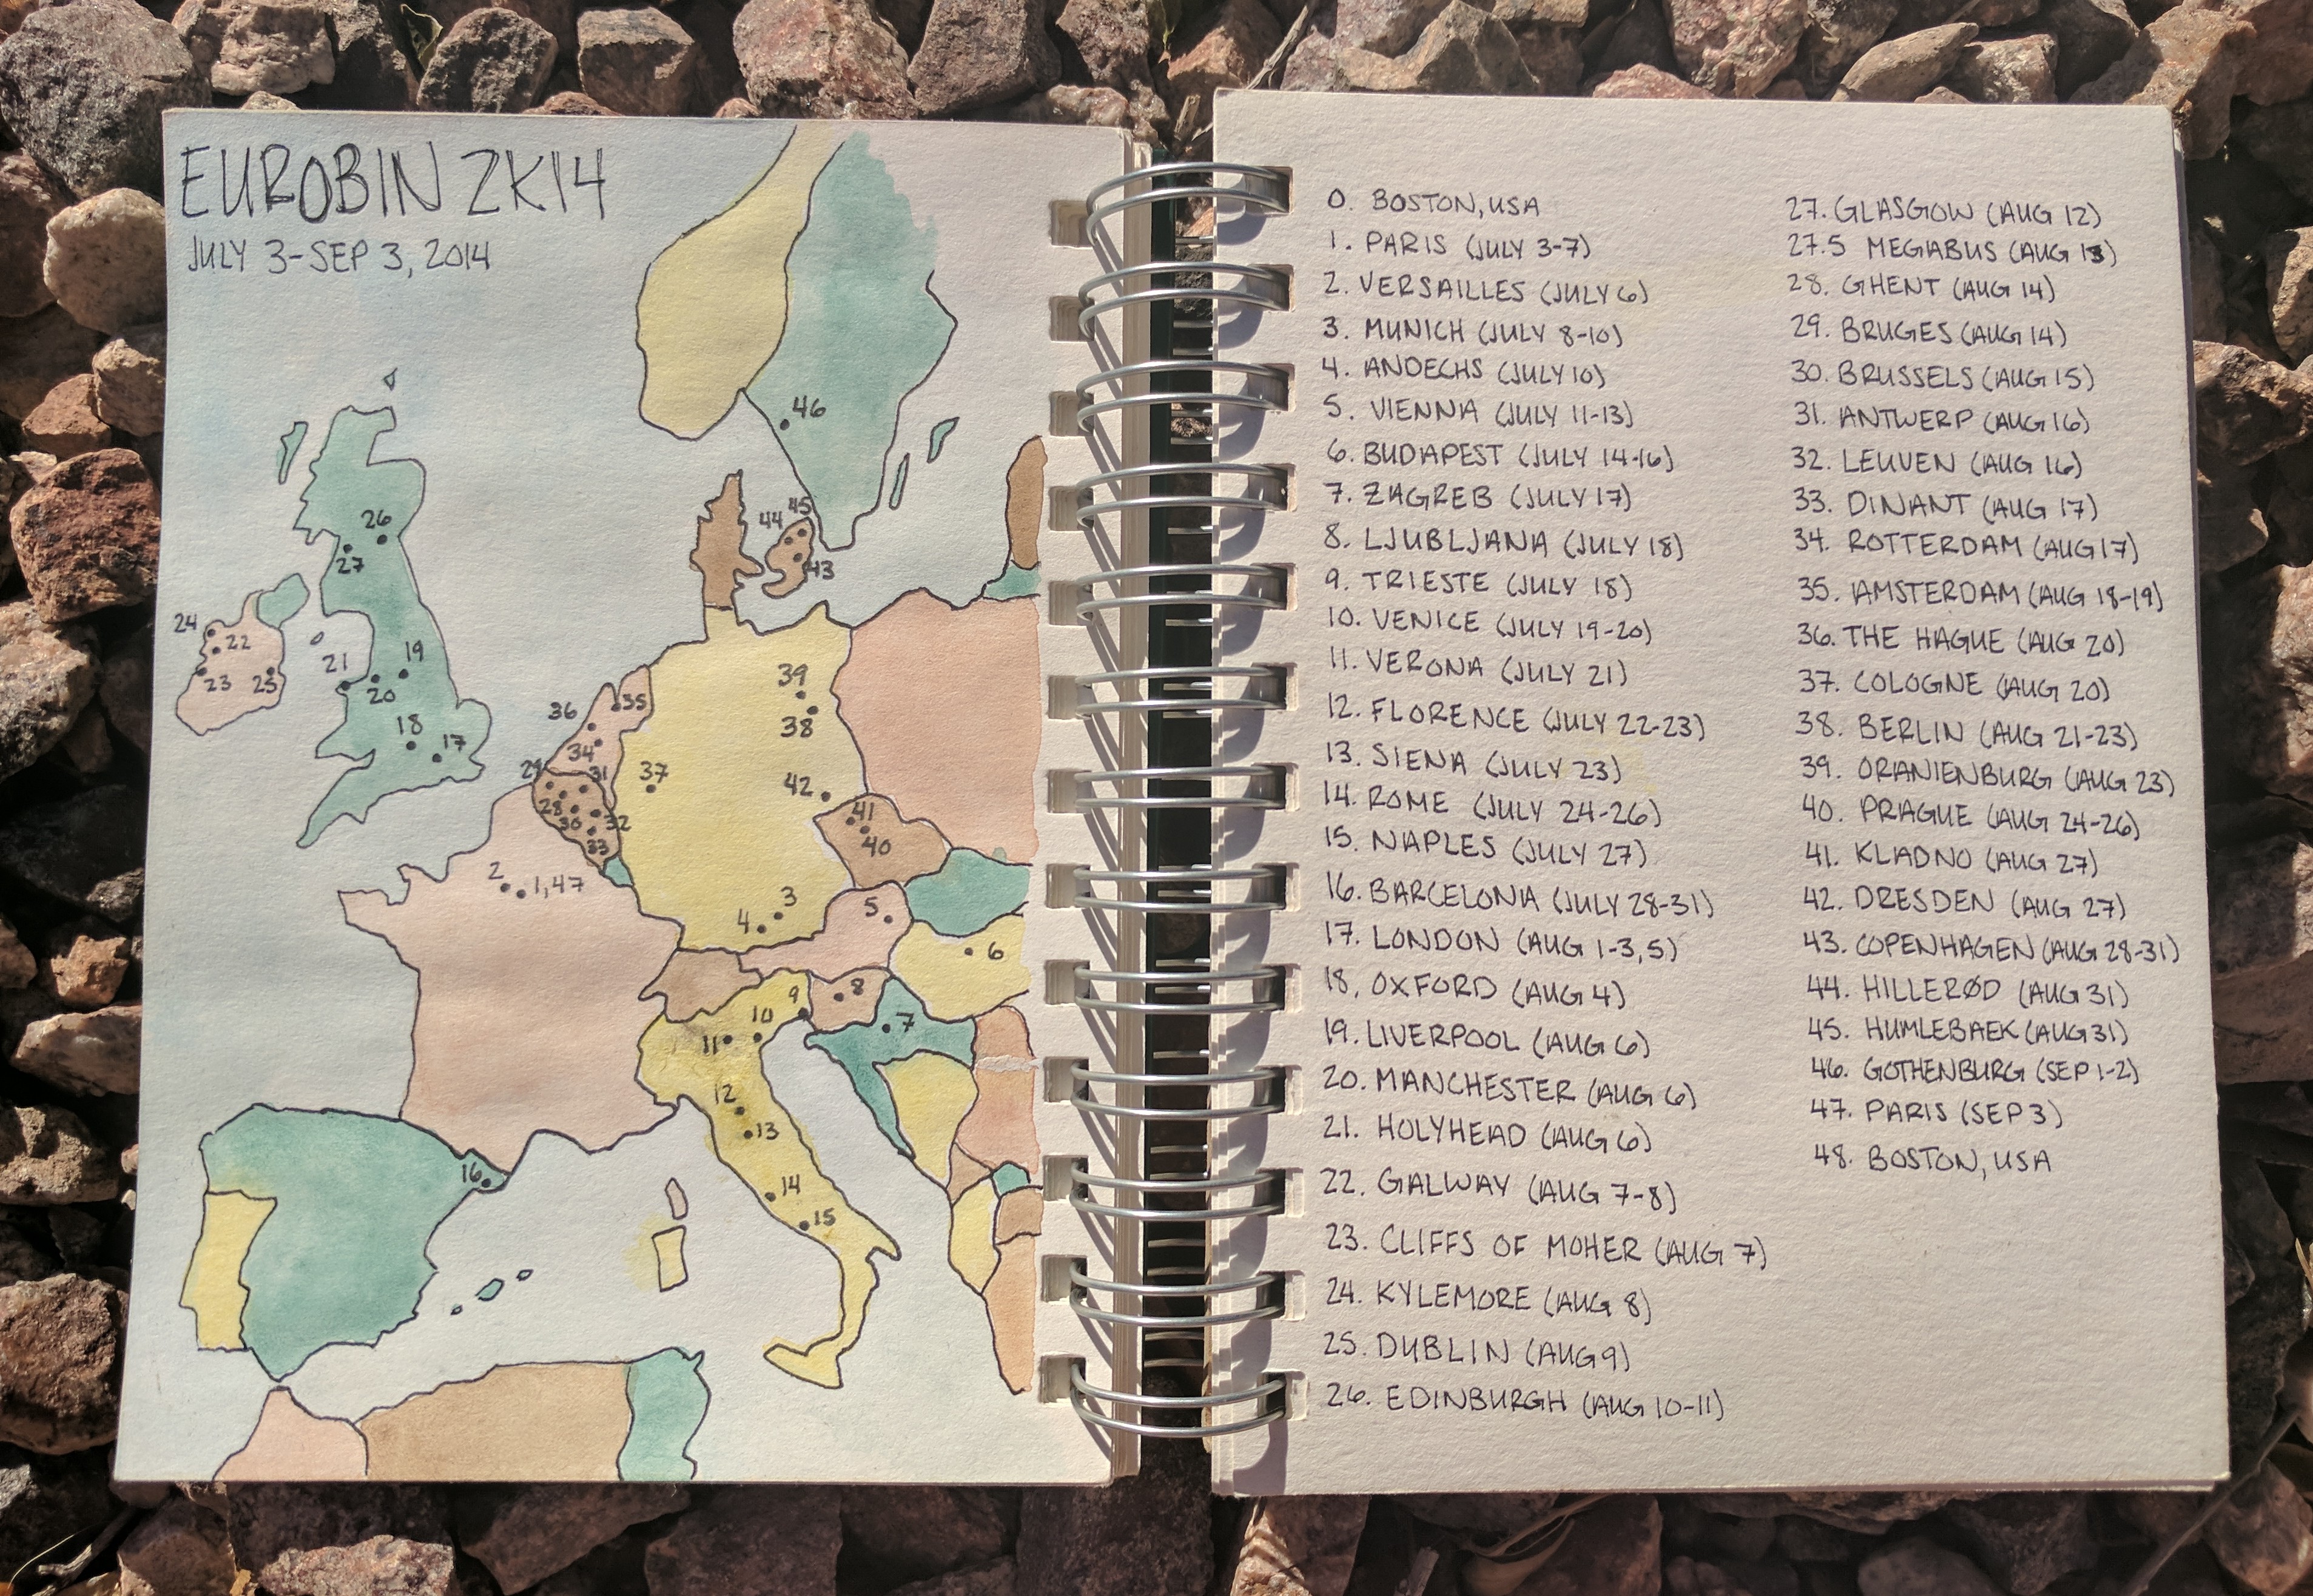 EUROBIN 2K14
JULY 3-SEP 3, 2014
46
45
44
43
26
27
24
22
23
25
21
19
20
18
17
39
38
36
35
34
29
31
37
28
30
32
33
42
41
40
2
1,47
3
4
5
6
9
8
10
7
11
12
13
14
15
16
0. BOSTON, USA
1. PARIS (JULY 3-7)
2. VERSAILLES (JULY 6)
3. MUNICH (JULY 8-10)
4. ANDECHS (JULY 10)
5. VIENNA (JULY 11-13)
6. BUDAPEST (JULY 14-16)
7. ZAGREB (JULY 17)
8. LJUBLJANA (JULY 18)
9. TRIESTE (JULY 18)
10. VENICE (JULY 19-20)
11. VERONA (JULY 21)
12. FLORENCE (JULY 22-23)
13. SIENA (JULY 23)
14. ROME (JULY 24-26)
15. NAPLES (JULY 27)
16. BARCELONA (JULY 28-31)
17. LONDON (AUG 1-3,5)
18. OXFORD (AUG 4)
19. LIVERPOOL (AUG 6)
20. MANCHESTER (AUG 6)
21. HOLYHEAD (AUG 6)
22. GALWAY (AUG 7-8)
23. CLIFFS OF MOHER (AUG 7)
24. KYLEMORE (AUG 8)
25. DUBLIN (AUG 9)
26. EDINBURGH (AUG 10-11)
27. GLASGOW (AUG 12)
27.5 MEGABUS (AUG 13)
28. GHENT (AUG 14)
29. BRUGES (AUG 14)
30. BRUSSELS (AUG 15)
31. ANTWERP (AUG 16)
32. LEUVEN (AUG 16)
33. DINANT (AUG 17)
34. ROTTERDAM (AUG 17)
35. AMSTERDAM (AUG 18-19)
36. THE HAGUE (AUG 20)
37. COLOGNE (AUG 20)
38. BERLIN (AUG 21-23)
39. ORANIENBURG (AUG 23)
40. PRAGUE (AUG 24-26)
41. KLADNO (AUG 27)
42. DRESDEN (AUG 27)
43. COPENHAGEN (AUG 28-31)
44. HILLERØD (AUG 31)
45. HUMLEBAEK (AUG 31)
46. GOTHENBURG (SEP 1-2)
47. PARIS (SEP 3)
48. BOSTON, USA